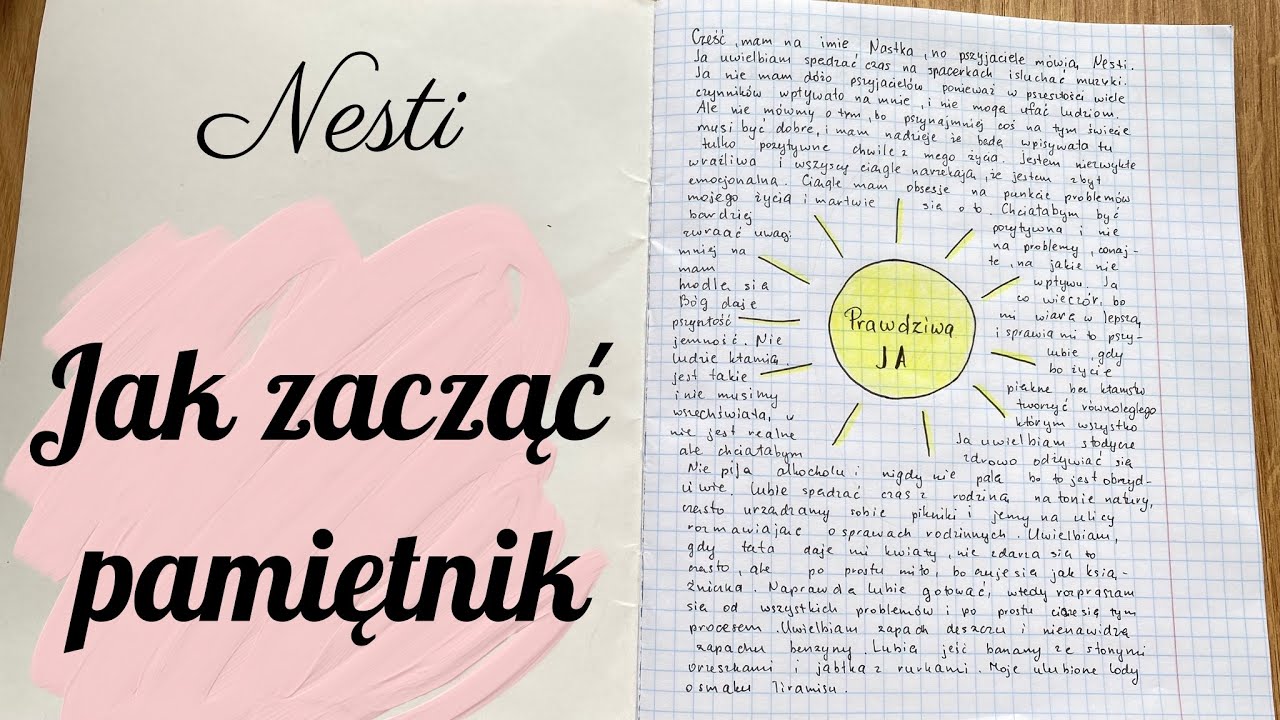 Nesti
Jak zacząć
pamiętnik
Cześć, mam na imie Nastka, no pszyjaciele mówią Nesti.
Ja uwielbiam spędzać czas na spacerkach i słuchać muzyki.
Ja nie mam dóżo pszyjaciełów ponieważ w pszeszłości wiele
czynników wpływało na mnie, i nie mogą ufać ludziom.
Ale nie mówmy o tym, bo pszynajmniej coś na tym świecie
musi być dobre, i mam nadzieje że bedę wpisywała tu
tulko pozytywne chwile z mego życia. Jestem niezwykle
wrażliwa i wszyscy ciągle narzekają, że jestem zbyt
emocjonalna. Ciągle mam obsesje na punkcie problemów
mojego życia i martwie się o to. Chciałabym być
bardziej pozytywna i nie
zwraać uwagi na problemy, conaj-
mniej na te, na jakie nie
mam wpływu. Ja
modlę się co wieczór, bo
Bóg daje mi wiarą w lepszą
pszyszłość i sprawia mi to pszy-
jemność. Nie lubie, gdy
ludzie kłamią, bo życie
jest takie piękne bez kłamstw
i nie musimy tworzyć równoległego
wszechświata, w którym wszystko
nie jest realne Ja uwielbiam słodycze
ale chciałabym zdrowo odżywiać się
Nie piją alkocholu i nigdy nie palą bo to jest obrzyd-
liwte. Lubie spędzać czas z rodziną na łonie natury,
często urządzamy sobie pikniki i jemy na ulicy
rozmawiając o sprawach rodzinnych. Uwielbiam,
gdy tata daje mi kwiaty, nie zdaną się to
często, ale po prostu miło, bo czuje się jak księ-
żniczka. Naprawdę lubie gotować, wtedy rozpraszam
się od wszystkich problemów i po prostu ciesze się tym
procesem. Uwielbiam zapach deszczu i nienawidzę
zapachu benzyny. Lubię jeść banany ze słonymi
orzeszkami i jabłka z rurkami. Moje ulubione lody
o smaku Tiramisu.
Prawdziwa
JA